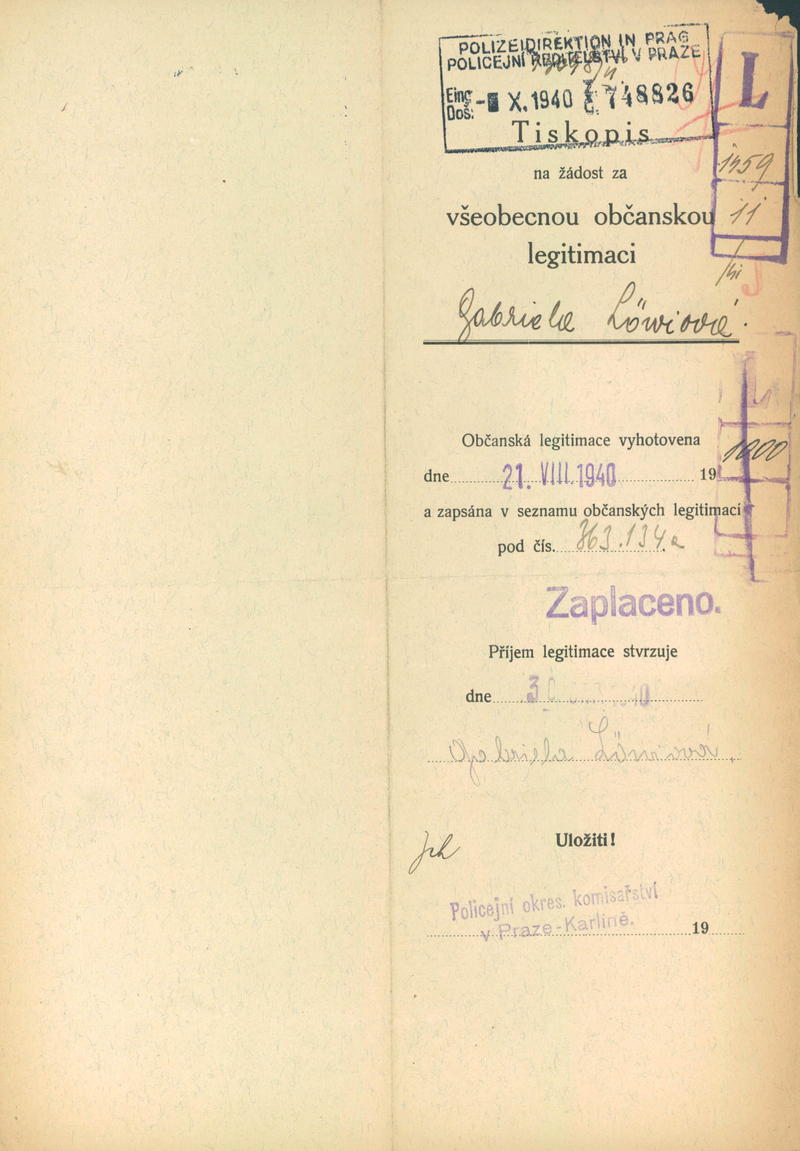 POLIZEIDIREKTION IN PRAG
POLICEJNÍ ŘEDITELSTVÍ V PRAZE
Eing.
Doš.
X. 1940
748826
L
Tiskopis
na žádost za
1359
všeobecnou občanskou
11
legitimaci
Gabriela Löwiová.
Občanská legitimace vyhotovena
1900
dne 21. VIII. 1940 19
a zapsána v seznamu občanských legitimací
pod čís.
Zaplaceno.
Příjem legitimace stvrzuje
dne
Gabriela Löwiová.
Uložiti!
Policejní okres. komisařství
v Praze-Karlíně.
19